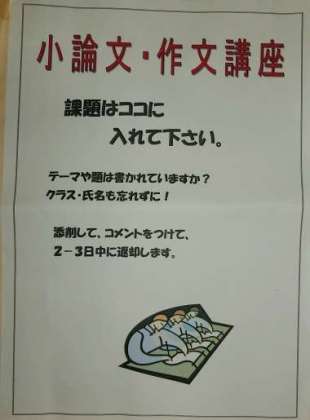 小論文・作文講座
課題はココに
入れて下さい。
テーマや題は書かれていますか？
クラス・氏名も忘れずに！
添削して、コメントをつけて、
２－３日中に返却します。